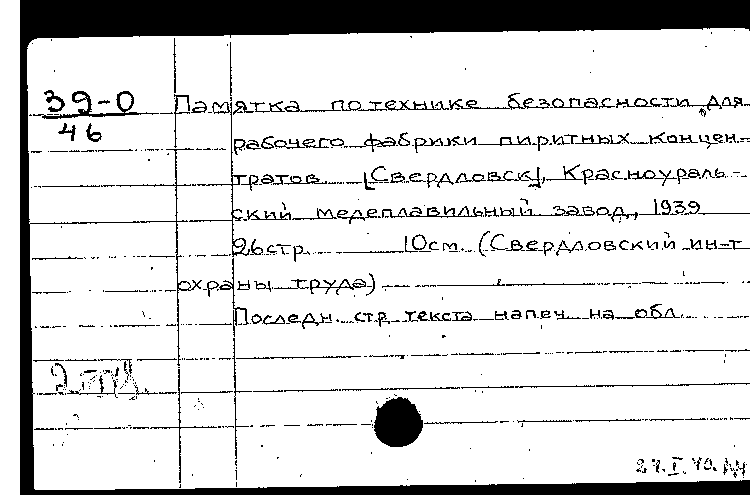 39-0
46
Памятка по технике безопасности для
рабочего фабрики пиритных концен-
тратов. [Свердловск], Красноураль-
ский медеплавильный завод, 1939
26 стр. 10 см. (Свердловский ин-т
охраны труда)
Последн. стр. текста напеч. на обл.
27.I.40.